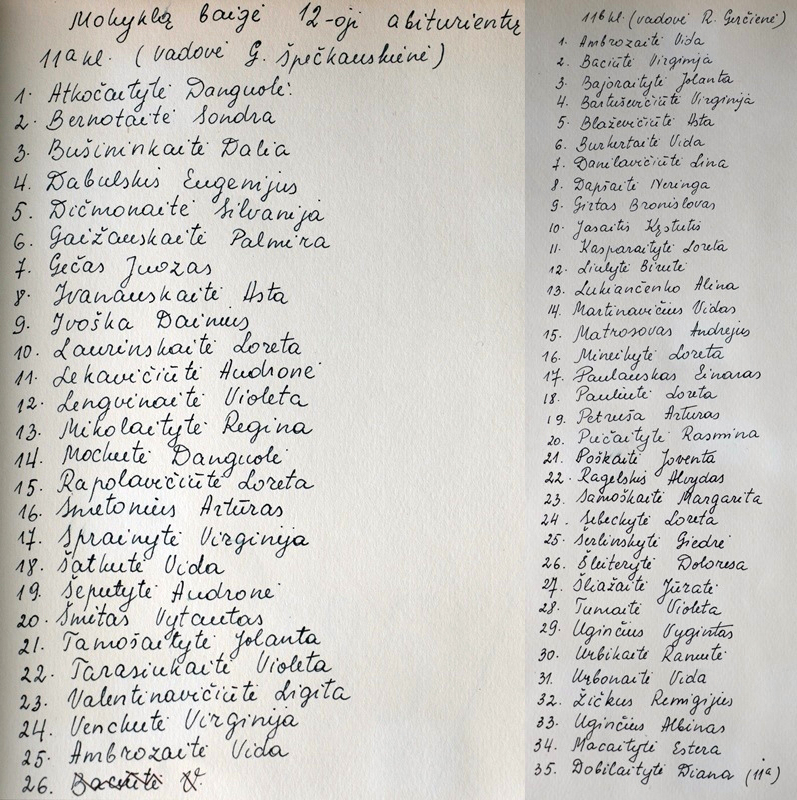 Mokyklą baigė 12-oji abiturientų
11a kl. (vadovė G. Špečkauskienė)
1. Atkočaitytė Danguolė.
2. Bernotaitė Sondra
3. Bušininkaitė Dalia
4. Dabulskis Eugenijus
5. Dičmonaitė Silvanija
6. Gaižauskaitė Palmira
7. Gečas Juozas
8. Ivanauskaitė Asta
9. Ivoška Dainius
10. Laurinskaitė Loreta
11. Lekavičiūtė Audronė
12. Lengvinaitė Violeta
13. Mikolaitytė Regina
14. Mockutė Danguolė
15. Rapolavičiūtė Loreta
16. Smetonius Artūras
17. Sprainytė Virginija
18. Šatkutė Vida
19. Šeputytė Audronė
20. Šmitas Vytautas
21. Tamošaitytė Jolanta
22. Tarasiukaitė Violeta
23. Valentinavičiūtė Ligita
24. Venckutė Virginija
25. Ambrozaitė Vida
26. Baciūtė V.
11b kl. (vadovė R. Gerčienė)
1. Ambrozaitė Vida
2. Baciūtė Virginija
3. Bajoraitytė Jolanta
4. Bartuševičiūtė Virginija
5. Blaževičiūtė Asta
6. Burkertaitė Vida
7. Danilavičiūtė Lina
8. Dapšaitė Neringa
9. Girtas Bronislovas
10. Jasaitis Kęstutis
11. Kasparaitytė Loreta
12. Liulytė Birutė
13. Lukiančenko Alina
14. Martinavičius Vidas
15. Matrosovas Andrejus
16. Mineikytė Loreta
17. Paulauskas Einaras
18. Pauliutė Loreta
19. Petruša Artūras
20. Piečaitytė Rasmina
21. Poškaitė Joventa
22. Ragelskis Alvydas
23. Samoškaitė Margarita
24. Sebeckytė Loreta
25. Šerlinskytė Giedrė
26. Šleiterytė Doloresa
27. Šliažaitė Jūratė
28. Tumaitė Violeta
29. Uginčius Vygintas
30. Urbikaitė Ramutė
31. Urbonaitė Vida
32. Žičkus Remigijus
33. Uginčius Albinas
34. Macaitytė Estera
35. Dobilaitytė Diana (11a)